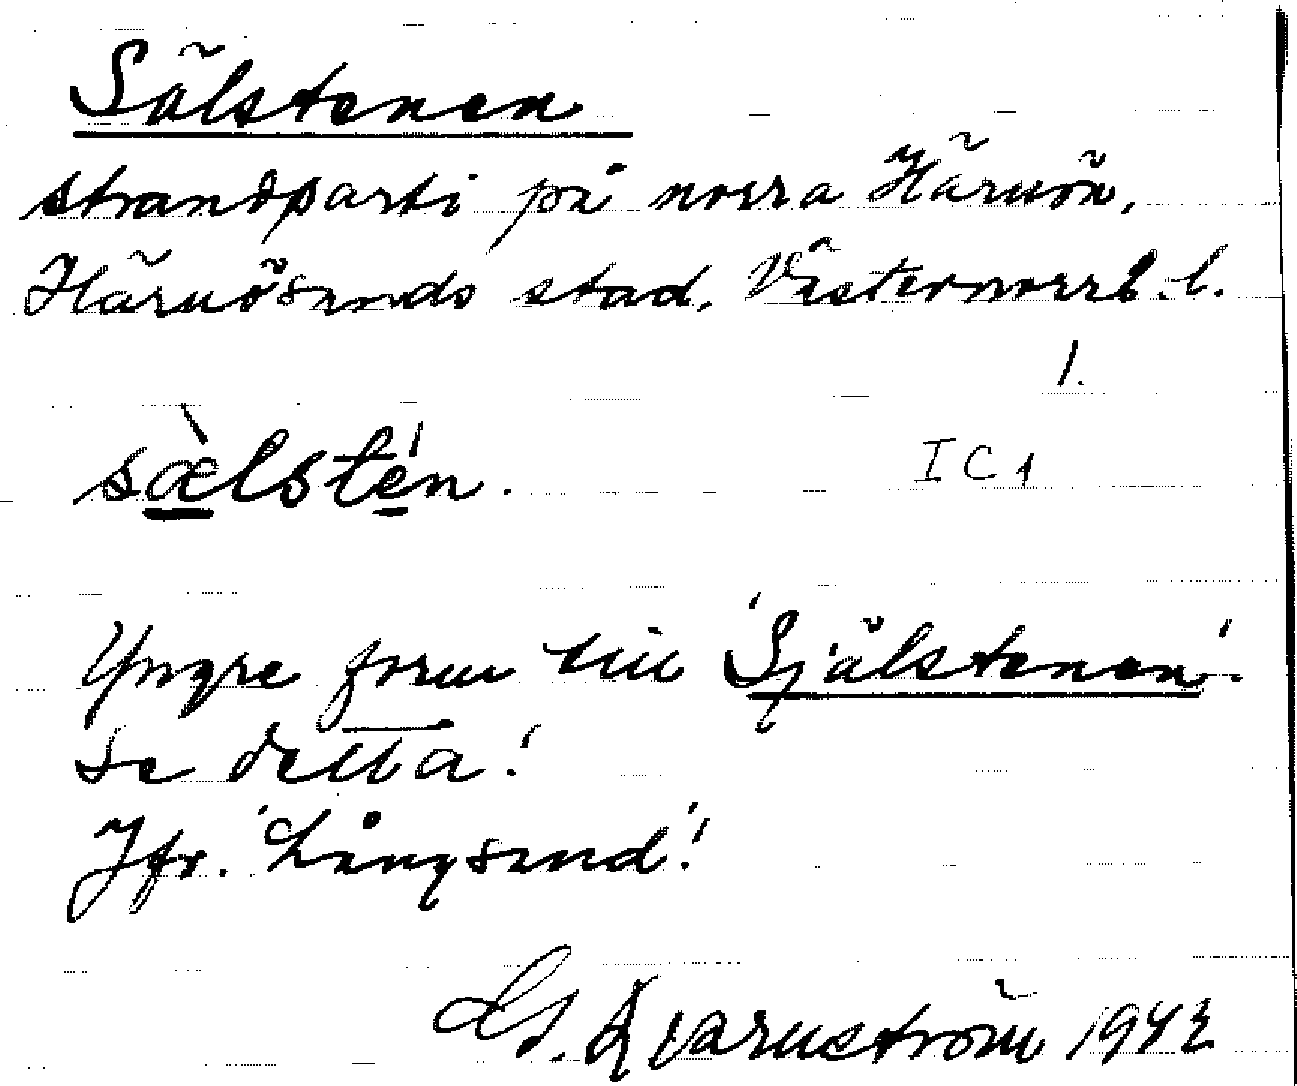 Sälstenen
strandparti på norra Härnön,
Härnösands stad, Västernorrl. l.
1.
sæ̀lsté́n.
I C 1
Yngre form till 'Självstenen'.
Se detta!
Jfr. 'Långsund'!
G. Qvarnström 1942